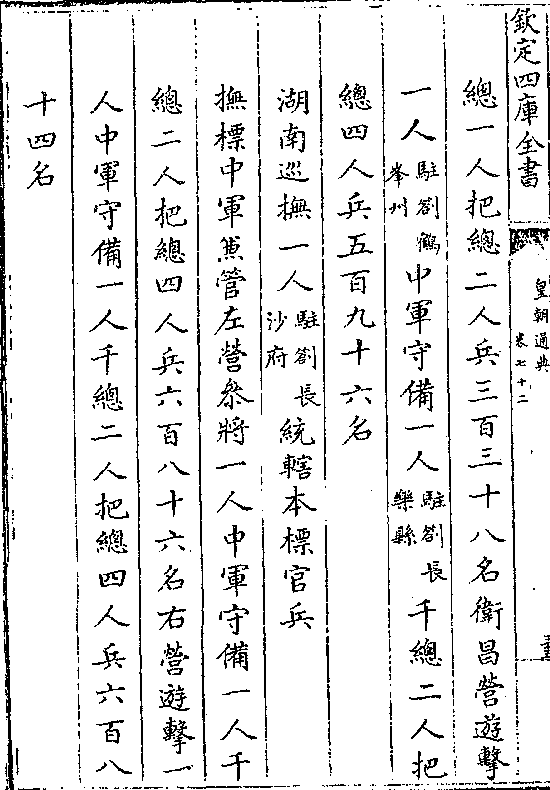 欽定四庫全書
皇朝通典
卷七十二
總一人把總二人兵三百三十八名衛昌營遊擊
一人駐劄鶴峯州中軍守備一人駐劄長樂縣千總二人把
總四人兵五百九十六名
湖南巡撫一人駐劄長沙府統轄本標官兵
撫標中軍兼管左營叅將一人中軍守備一人千
總二人把總四人兵六百八十六名右營遊擊一
人中軍守備一人千總二人把總四人兵六百八
十四名